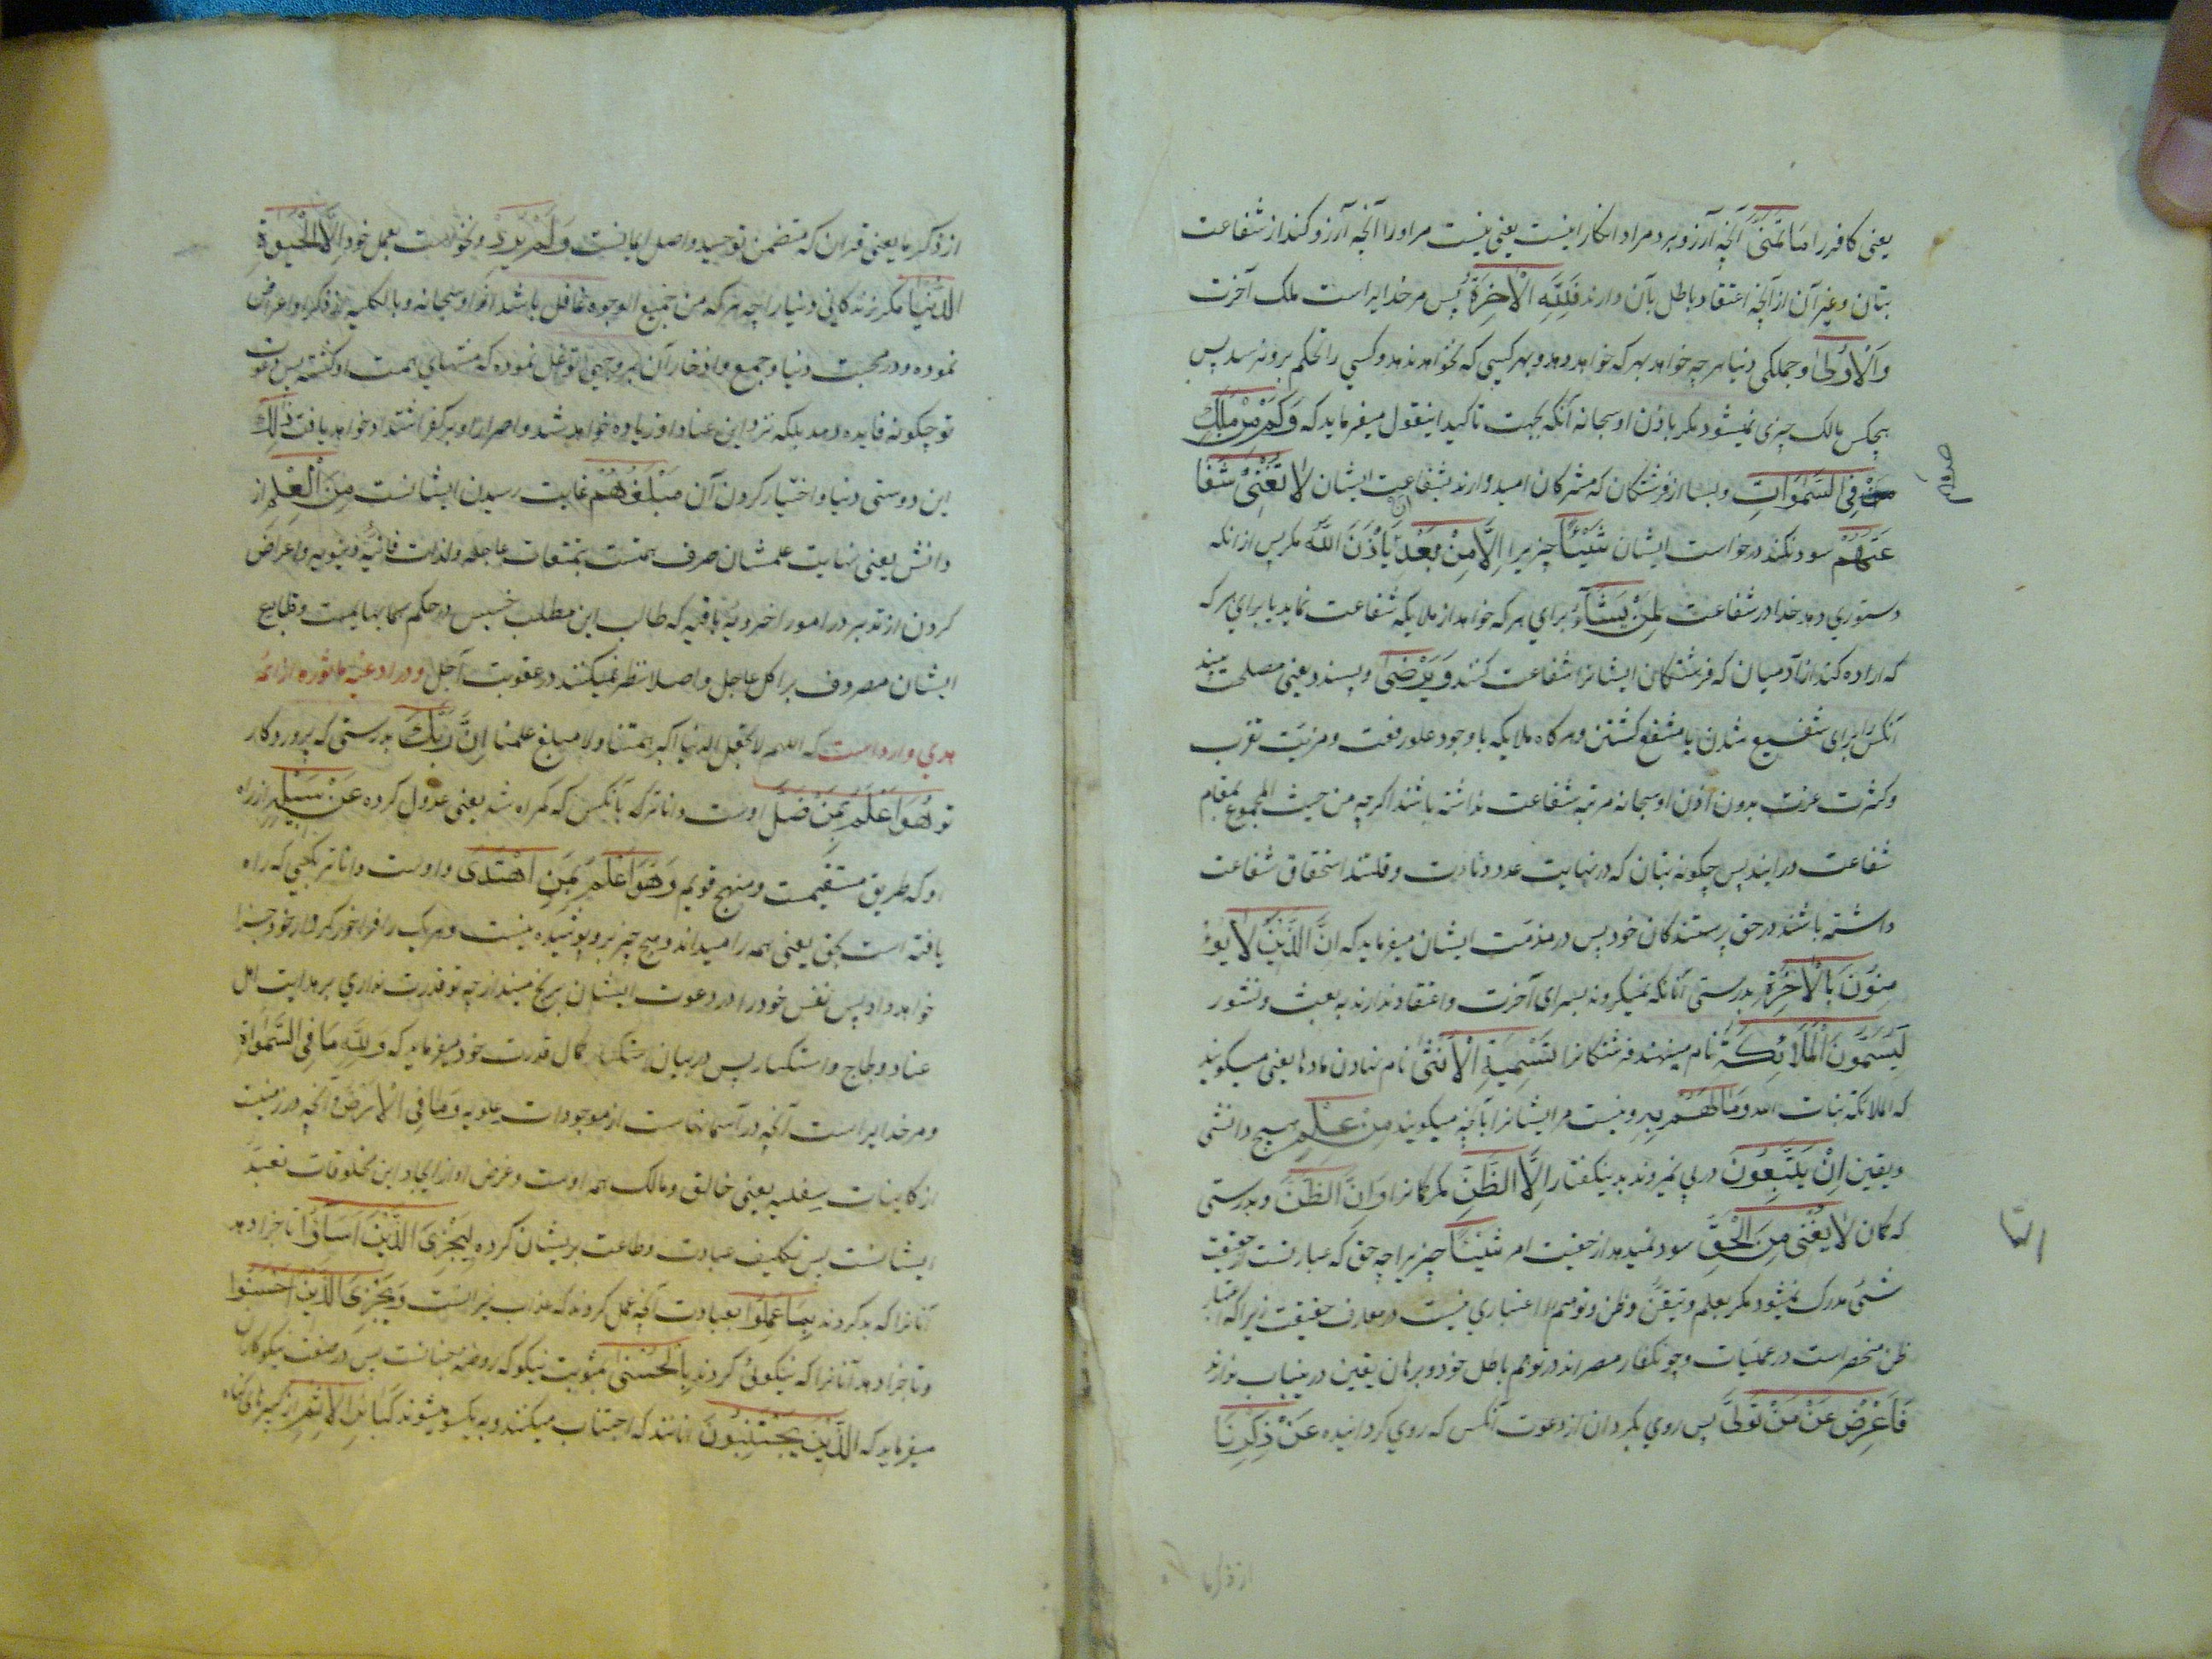 یعنی کافر را مَا تَمَنّٰی آنچه آرزو برد مراد انکار اینست یعنی نیست مر او را آنچه آرزو کند از شفاعت
بتان و غیر آن از آنچه اعتقاد باطل بآن دارند فَلِلّٰهِ الْاٰخِرَةُ پس مر خدایراست ملک آخرت
وَالْاُولٰی و جملکی دنیا هر چه خواهد بهر که خواهد دهد و بهر کسی که نخواهد ندهد و کسی را تحکم برو نرسد پس
هیچکس مالک چیزی نمیشود مکر باذن او سبحانه آنکه بجهت تاکید اینقول میفرماید که وَکَمْ مِنْ مَلَكٍ
فِی السَّمٰوَاتِ و بسا از فرشتکان که مشرکان امید دارند بشفاعت ایشان لَا تُغْنِیْ شَفَا
عَتُهُمْ سود نکند درخواست ایشان شَیْئًا چیزیرا اِلَّا مِنْ بَعْدِ اَنْ یَأْذَنَ اللّٰهُ مکر پس از آنکه
دستوری دهد خدا در شفاعت لِمَنْ یَشَآءُ برای هر که خواهد از ملایکه شفاعت نماید یا برای هر که
که اراده کند از آدمیان که فرشتکان ایشانرا شفاعت کنند وَیَرْضٰی و پسندد یعنی مصلحت بیند
آنکس را برای شفیع شدن یا مشفع کشتن و هر کاه ملایکه با وجود علو رفعت و مزیت تقرب
و کثرت عزت بدون اذن او سبحانه مرتبه شفاعت نداشته باشند اکرچه من حیث المجموع بمقام
شفاعت درایند پس چکونه بتان که در نهایت عدد دنائت و قلتند استحقاق شفاعت
داشته باشند در حق پرستندکان خود پس در مذمت ایشان میفرماید که اِنَّ الَّذِیْنَ لَا یُؤْ
مِنُوْنَ بِالْاٰخِرَةِ بدرستی آنانکه نمیکروند بسرای آخرت و اعتقاد ندارند به بعث و نشور
لَیُسَمُّوْنَ الْمَلٰٓائِکَةَ نام مینهند فرشتکانرا تَسْمِیَةَ الْاُنْثٰی نام نهادن مادها یعنی میکویند
که الملائکة بنات الله وَمَا لَهُمْ بِهٖ و نیست مر ایشانرا بآنچه میکویند مِنْ عِلْمٍ هیچ دانشی
و یقین اِنْ یَتَّبِعُوْنَ در پی نمیروند بدینکفتار اِلَّا الظَّنَّ مکر کمانرا وَاِنَّ الظَّنَّ و بدرستی
که کمان لَا یُغْنِی مِنَ الْحَقِّ سود نمیدهد از حقیت امر شَیْئًا چیزیرا چه حق که عبارتست از حقیقت
شئ مدرک نمیشود مکر بعلم و تیقن و ظن و توهم را اعتباری نیست در معارف حقیقت زیرا که اعتبار
ظن منحصر است در عملیات و چون کفار مصراند در توهم باطل خود و برهان یقین درینباب ندارند
فَاَعْرِضْ عَنْ مَنْ تَوَلّٰی پس روی بکردان از دعوت آنکس که روی کردانیده عَنْ ذِکْرِنَا
از ذکر ما
از ذکر ما یعنی قرآن که متضمن توحید و اصل ایمانست وَلَمْ یُرِدْ و نخواست بعمل خود اِلَّا الْحَیٰوةَ
الدُّنْیَا مکر زندکانی دنیا را چه هر که من جمیع الوجوه غافل باشد از او سبحانه و بالکلیه از ذکر او اعراض
نموده و در محبت دنیا و جمع و ادخار آن بروجهی توغل نموده که منتهای همت او کشته پس دعوت
تو چکونه فایده دهد بلکه نزد این عناد او زیاده خواهد شد و اصرار او بر کفر اشتداد خواهد یافت ذٰلِكَ
این دوستی دنیا و اختیار کردن آن مَبْلَغُهُمْ غایت رسیدن ایشانست مِنَ الْعِلْمِ از
دانش یعنی نهایت علمشان صرف همتست بتمتعات عاجله و لذات فانیه دنیویه و اعراض
کردن از تدبر در امور اخرویه باقیه که طالب این مطلب خسیس در حکم بهایمست و طبایع
ایشان مصروف بر اکل عاجل و اصلا نظر نمیکنند در عقوبت آجل و در ادعیه ماثوره از ائمه
هدی وارد است که اللهم لا تجعل الدنیا اکبر همتنا ولا مبلغ علمنا اِنَّ رَبَّكَ بدرستی که پروردکار
تو هُوَ اَعْلَمُ بِمَنْ ضَلَّ اوست داناتر که بآنکس که کمراه شد یعنی عدول کرده عَنْ سَبِیْلِهٖ از راه
او که طریق مستقیمست و منهج قویم وَهُوَ اَعْلَمُ بِمَنِ اهْتَدٰی و اوست داناتر بکسی که راه
یافته است بحق یعنی همه را میداند و هیچ چیز برو پوشیده نیست و هر یک را فراخور کردار خود جزا
خواهد داد پس نفس خود را در دعوت ایشان برنج مینداز چه تو قدرت نداری بر هدایت اهل
عناد و لجاج و استکبار پس در بیان کمال قدرت خود میفرماید که وَلِلّٰهِ مَا فِی السَّمٰوَاتِ
و مر خدایراست آنچه در آسمانهاست از موجودات علویه وَمَا فِی الْاَرْضِ و آنچه در زمینست
از کاینات سفلیه یعنی خالق و مالک همه اوست و غرض او از ایجاد این مخلوقات تعبد
ایشانست پس تکلیف عبادت و طاعت بریشان کرده لِیَجْزِیَ الَّذِیْنَ اَسَاؤُا تا جزا دهد
آنانرا که بد کردند بِمَا عَمِلُوْا بعبادت آنچه عمل کردند که عذاب نیرانست وَیَجْزِیَ الَّذِیْنَ اَحْسَنُوا
و تا جزا دهد آنانرا که نیکوئی کردند بِالْحُسْنٰی بمثوبت نیکو که روضه جنانست پس در صفت نیکوکاران
میفرماید که الَّذِیْنَ یَجْتَنِبُوْنَ آنانند که اجتناب میکنند و به یکسو میشوند کَبَائِرَ الْاِثْمِ از کبیرهای کناه